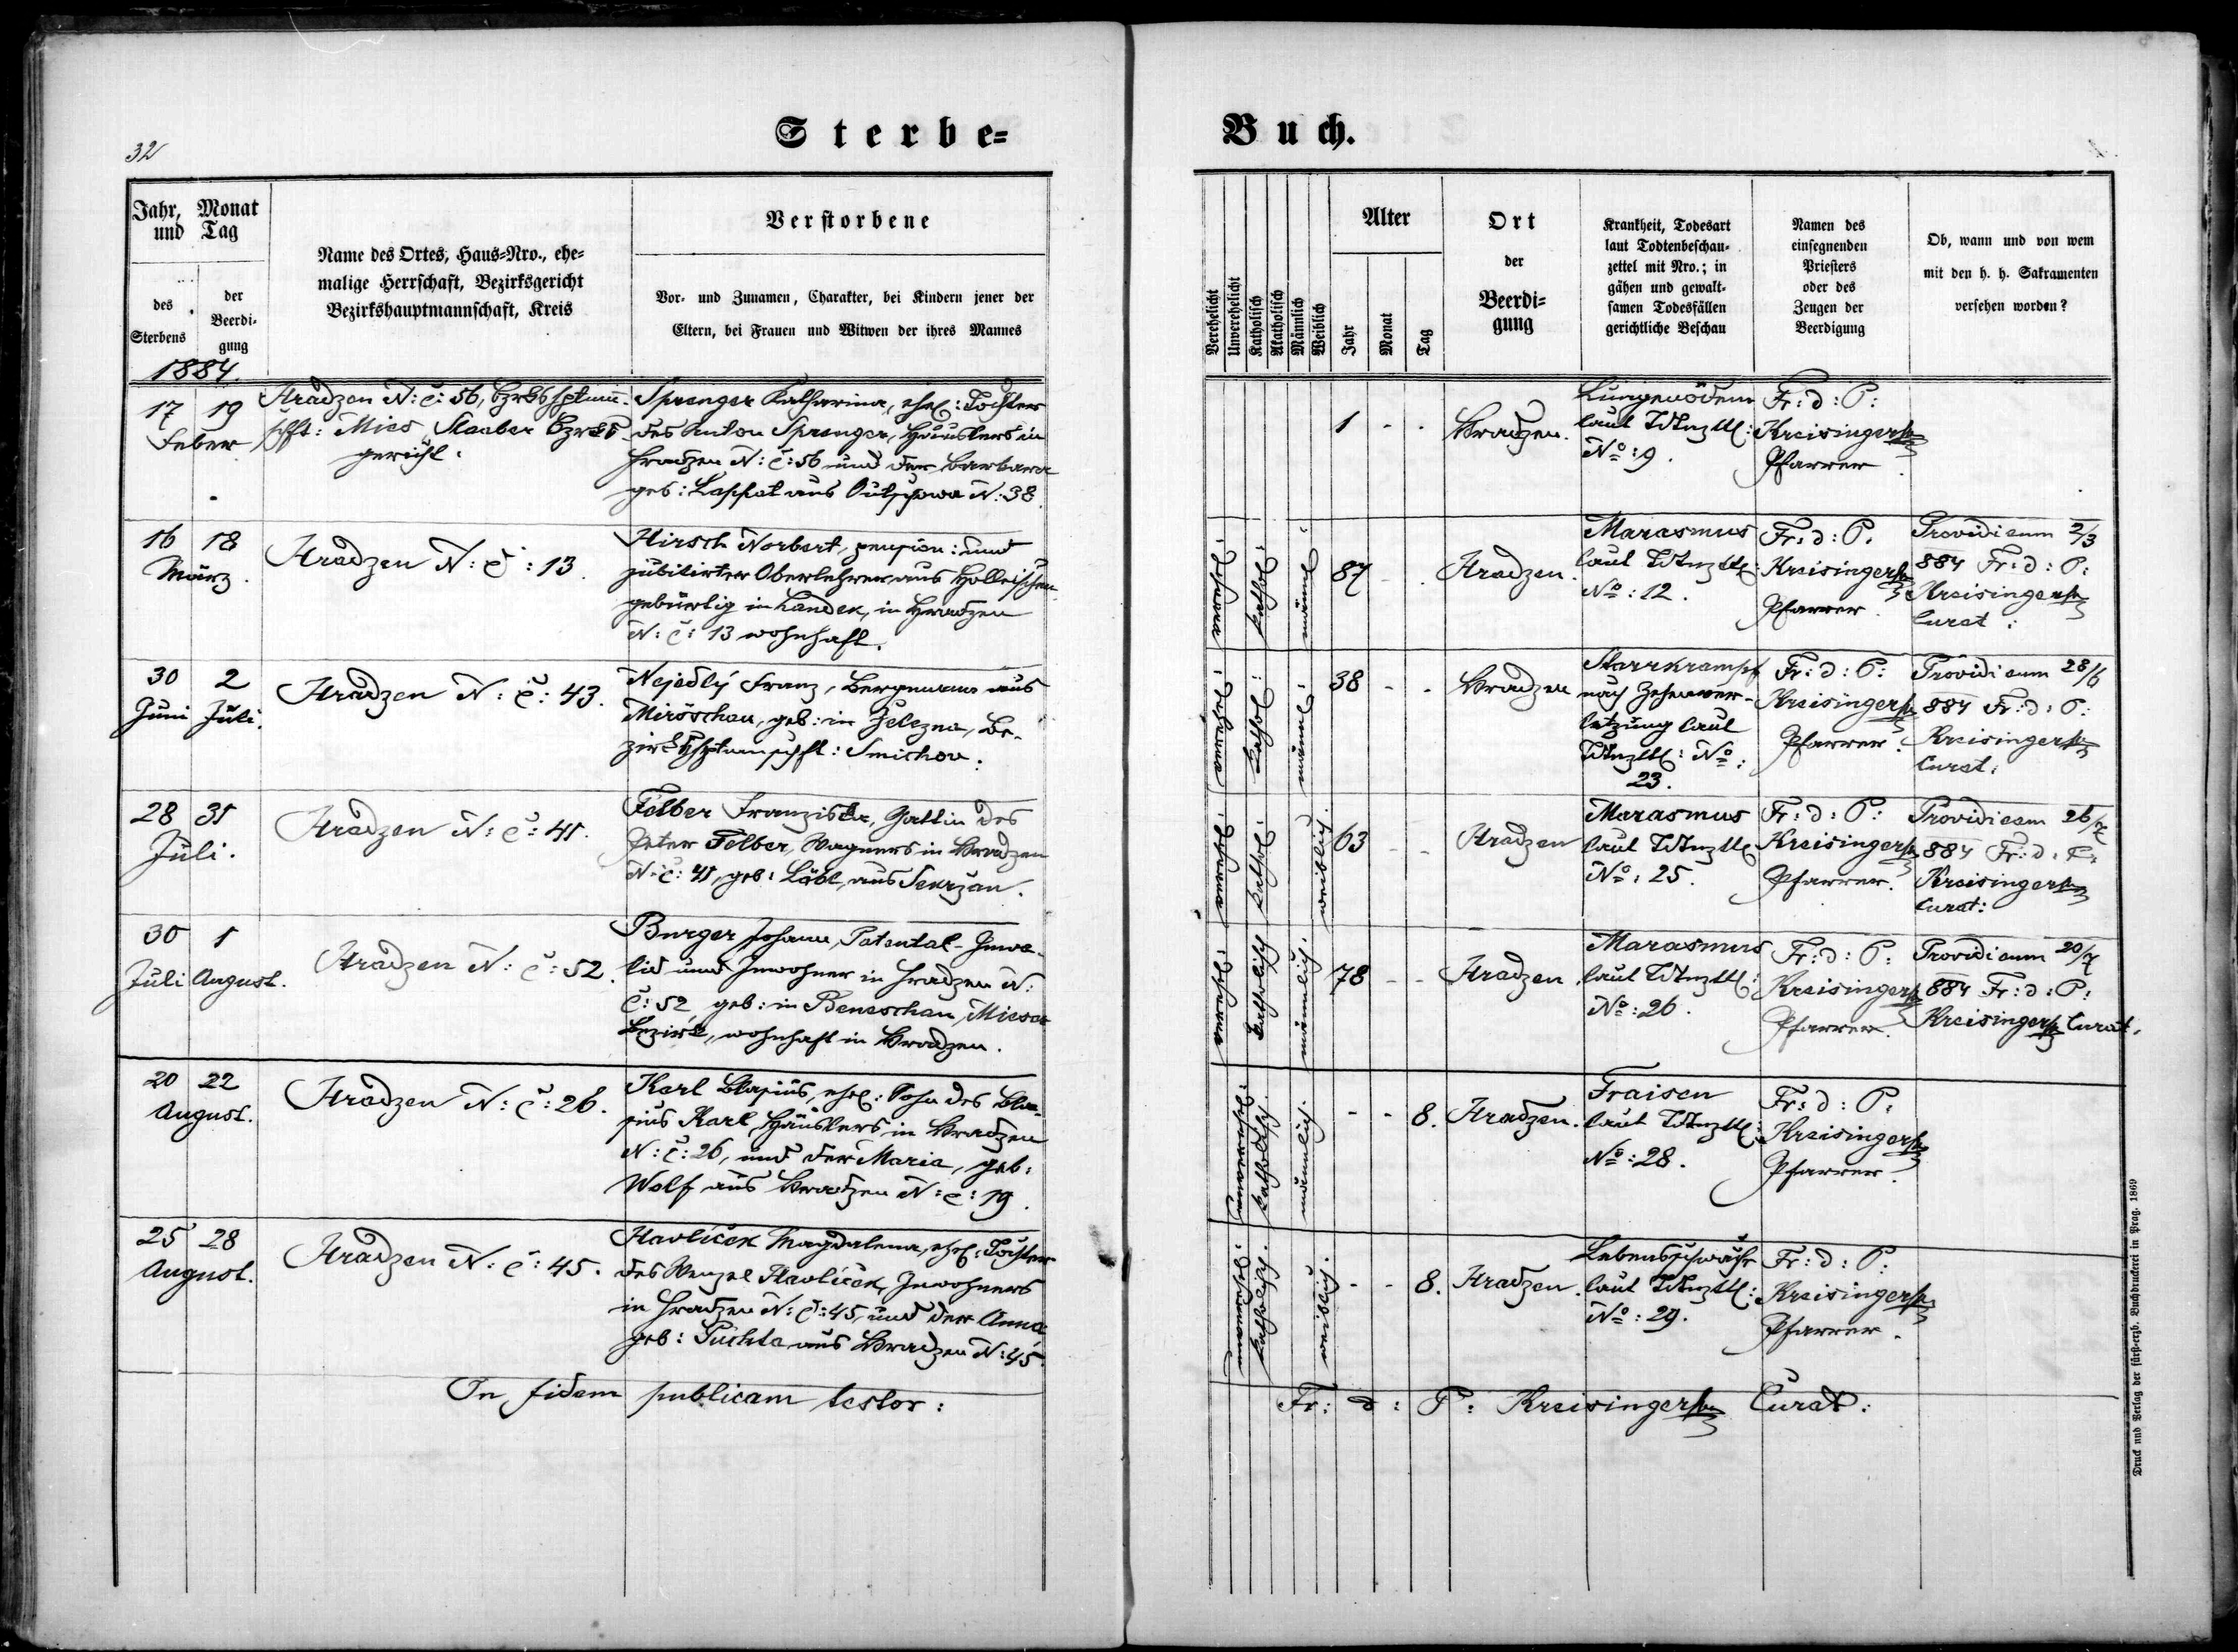 32
Sterbe=
Jahr, Monat
und Tag
des
Sterbens
der
Beerdi-
gung
Name des Ortes, Haus=Nro., ehe=
malige Herrschaft, Bezirksgericht
Bezirkshauptmannschaft, Kreis
Verstorbene
Vor- und Zunamen, Charakter, bei Kindern jener der
Eltern, bei Frauen und Witwen der ihres Mannes
1884.
17 19
Feber
Hradzen N: č: 56,
schft: Mies Staaber
gericht.
Sprenger Katharina, ehel: Tochter
des Anton Sprenger, Häuslers in
Hradzen N: č: 56 und der Barbara
geb: aus N: 38.
16 18
März.
Hradzen N: č: 13.
Hirsch Norbert, pension: und
jubilirter Oberlehrer aus Holleischen
gebürtig in Landek, in Hradzen
N: č: 13 wohnhaft.
30 2
Juni Juli.
Hradzen N: č: 43.
Nejedlý Franz, Bergmann aus
Miröschau, geb: in Železna, Be-
zirkshptmschft: Smichov.
28 31
Juli.
Hradzen N: č: 41.
Felber Franziska, Gattin des
Peter Felber, Wagners in Hradzen
N: č: 41, geb: Löbl, aus Sekržan.
30 1
Juli August.
Hradzen N: č: 52.
Burger Johann, Patental-Inva-
lid und Inwohner in Hradzen N:
č: 52, geb: in Beneschau, Mieser
Bezirk, wohnhaft in Hradzen.
20 22
August.
Hradzen N: č: 26.
Karl Blasius, ehel: Sohn des Bla-
sius Karl, Häuslers in Hradzen
N: č: 26, und der Maria, geb:
Wolf aus Hradzen N: č: 19.
25 28
August.
Hradzen N: č: 45.
Havlíček Magdalena, ehel: Tochter
des Wenzel Havlíček, Inwohners
in Hradzen N: č: 45, und der Anna
geb: Puchta aus Hradzen N: 45.
In fidem publicam testor:
Buch.
Verehelicht
Unverehelicht
Katholisch
Akatholisch
Männlich
Weiblich
Alter
Jahr
Monat
Tag
Ort
der
Beerdi=
gung
Krankheit, Todesart
laut Todtenbeschau-
zettel mit Nro.; in
gähen und gewalt-
samen Todesfällen
gerichtliche Beschau
Namen des
einsegnenden
Priesters
oder des
Zeugen der
Beerdigung
Ob, wann und von wem
mit den h. h. Sakramenten
versehen worden?
1 - -
Hradzen.
Lungenödem
laut Tdtnzttl:
No: 9.
Fr: d: P:
Kreisinger
Pfarrer
kathol:
männl:
87 - -
Hradzen.
Marasmus
laut Tdtnzttl:
No: 12.
Fr: d: P.
Kreisinger
Pfarrer
Providi eum 2/3
884 Fr: d: P:
Kreisinger
Curat:
kathol:
männl:
38 - -
Hradzen
Starrkrampf
nach Zehenver-
letzung laut
Tdtnzttl: No:
23.
Fr: d: P:
Kreisinger
Pfarrer.
Providi eum 28/6
884 Fr: d: P:
Kreisinger
Curat:
kathol:
weiblich.
63 - -
Hradzen
Marasmus
laut Tdtnzttl
No: 25.
Fr: d: P:
Kreisinger
Pfarrer.
Providi eam 26/7
884 Fr: d: P:
Kreisinger
Curat:
katholisch
männlich.
78 - -
Hradzen.
Marasmus
laut Tdtnzttl:
No: 26.
Fr: d: P:
Kreisinger
Pfarrer.
Providi eum 20/7
884 Fr: d: P:
Kreisinger Curat.
unverehel:
katholisch.
männlich.
- - 8.
Hradzen.
Fraisen
laut Tdtnzttl:
No: 28.
Fr: d: P:
Kreisinger
Pfarrer.
unverehel:
katholisch.
weiblich.
- - 8.
Hradzen.
Lebensschwäche
laut Tdtnzttl:
No: 29.
Fr: d: P:
Kreisinger
Pfarrer.
Fr: d: P: Kreisinger Curat:
Druck und Verlag der fürst-erzb. Buchdruckerei in Prag. 1869